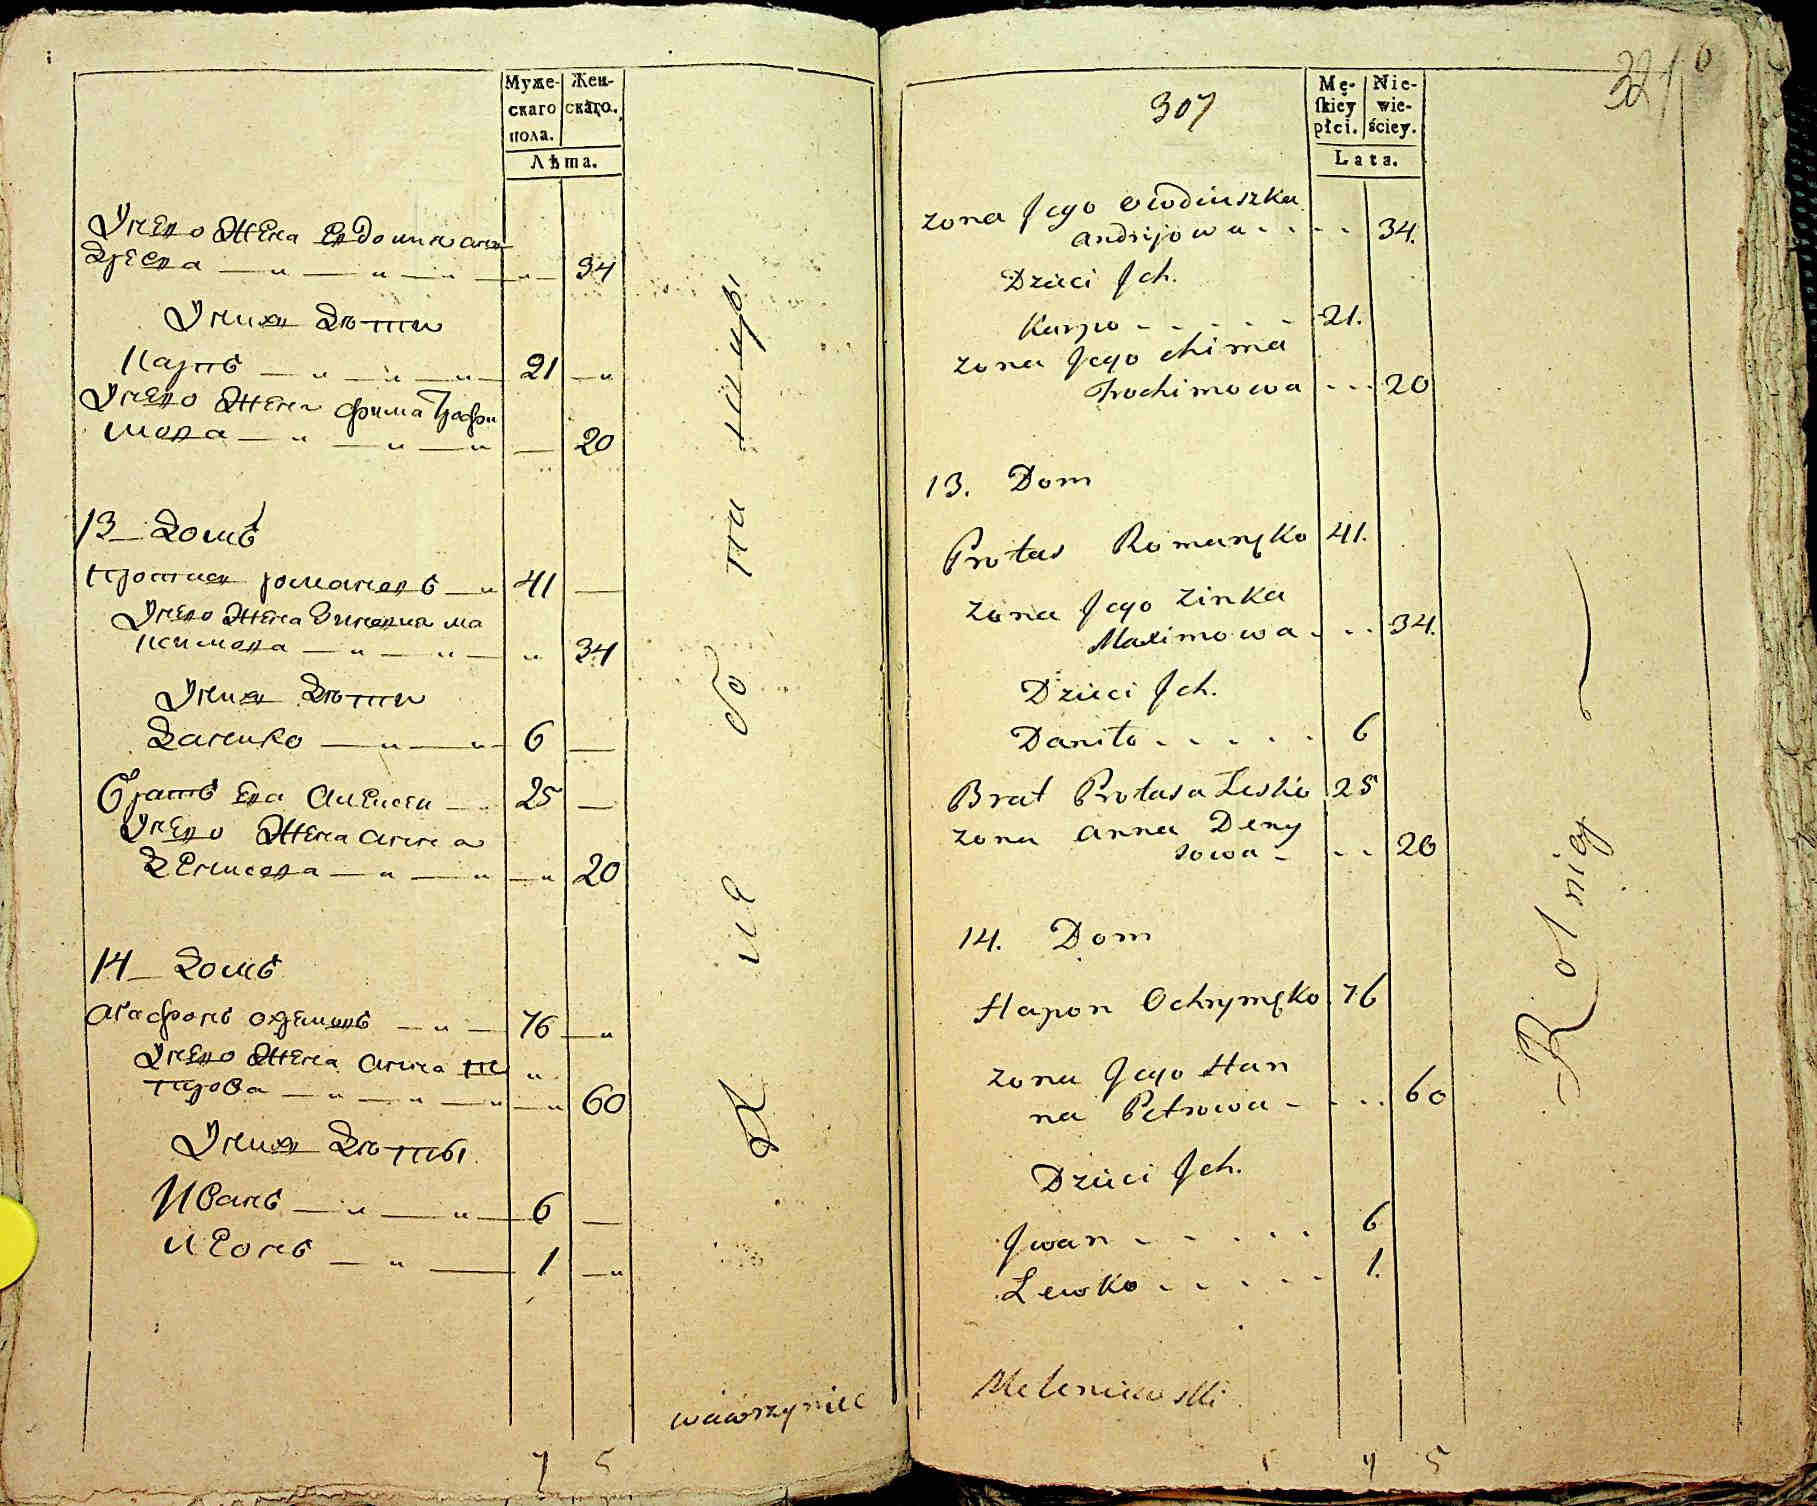 Муже-
скаго
пола.
Жен-
скаго.
Лѣта.
Унево жена Евдокия Ан
древа 34
Уних дѣти
Карпъ 21
Унево жена Фима Трофи
мова 20
13 Домъ
Протас Романовъ 41
Унево жена Зиновия Ма
ксимова 34
Уних дѣти
Данило 6
братъ ево Алексеи 25
Унево жена Анна
Денисова 20
14 Домъ
Агафонъ Охремовъ 76
Унево жена Анна Пе
трова 60
Уних дѣты
Иванъ 6
Леонъ 1
хлебопашцы
wawrzyniec
7 5
307
321
6
Mę-
skiey
płci.
Nie-
wie-
ściey.
Lata.
zona Jego Owdiuszka
Andrijowa 34.
Dzieci Jch.
Karpo 21.
zona Jego Chima
Trochimowa 20
13. Dom
Protas Romanęko 41.
zona Jego Zinka
Maximowa 34.
Dzieci Jch.
Daniło 6
Brat Protasa Lesko 25
zona Anna Deny
sowa 20
14. Dom
Hapon Ochrymęko 76
zona Jego Han
na Petrowa 60
Dzieci Jch.
Jwan 6
Lewko 1.
Rolnicy
Meleniewski
7 5